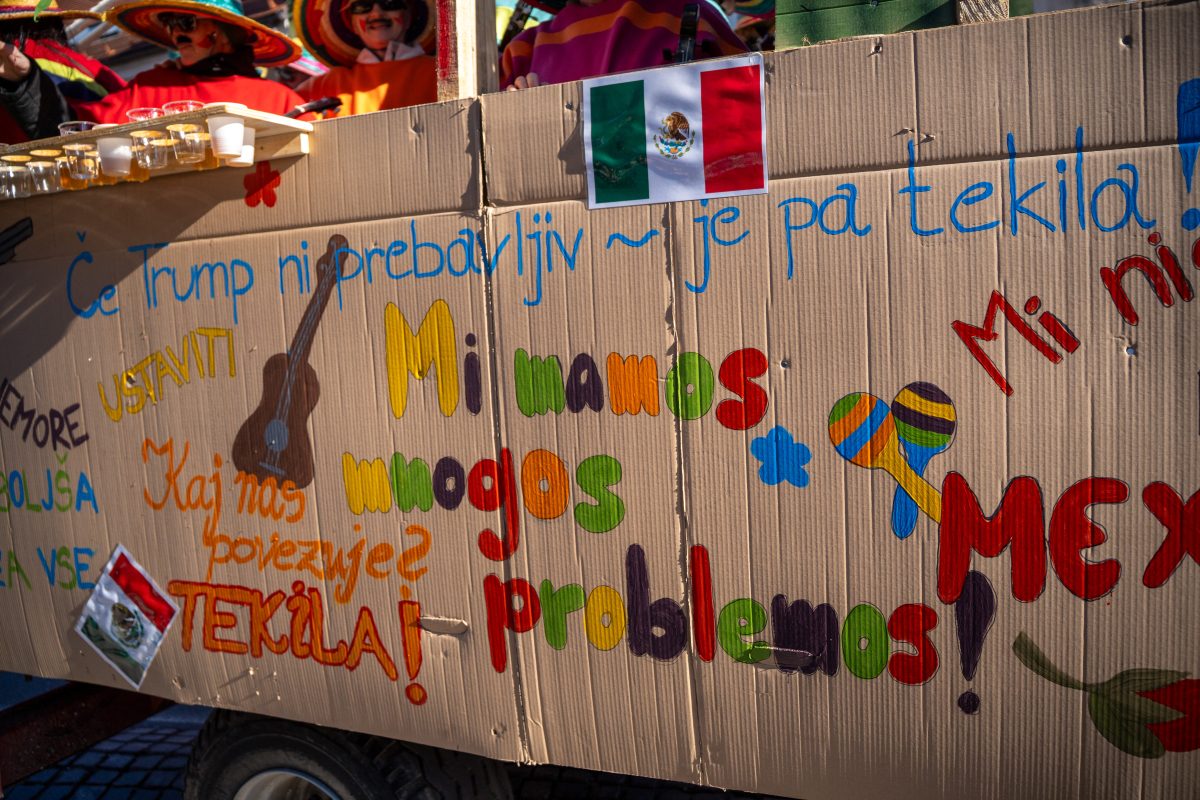 Če Trump ni prebavljiv ~ je pa tekila!
USTAVITI
BOLJŠA
VSE
Kaj nas
povezuje?
TEKILA!
Mi mamos
mnogos
problemos!
Mi